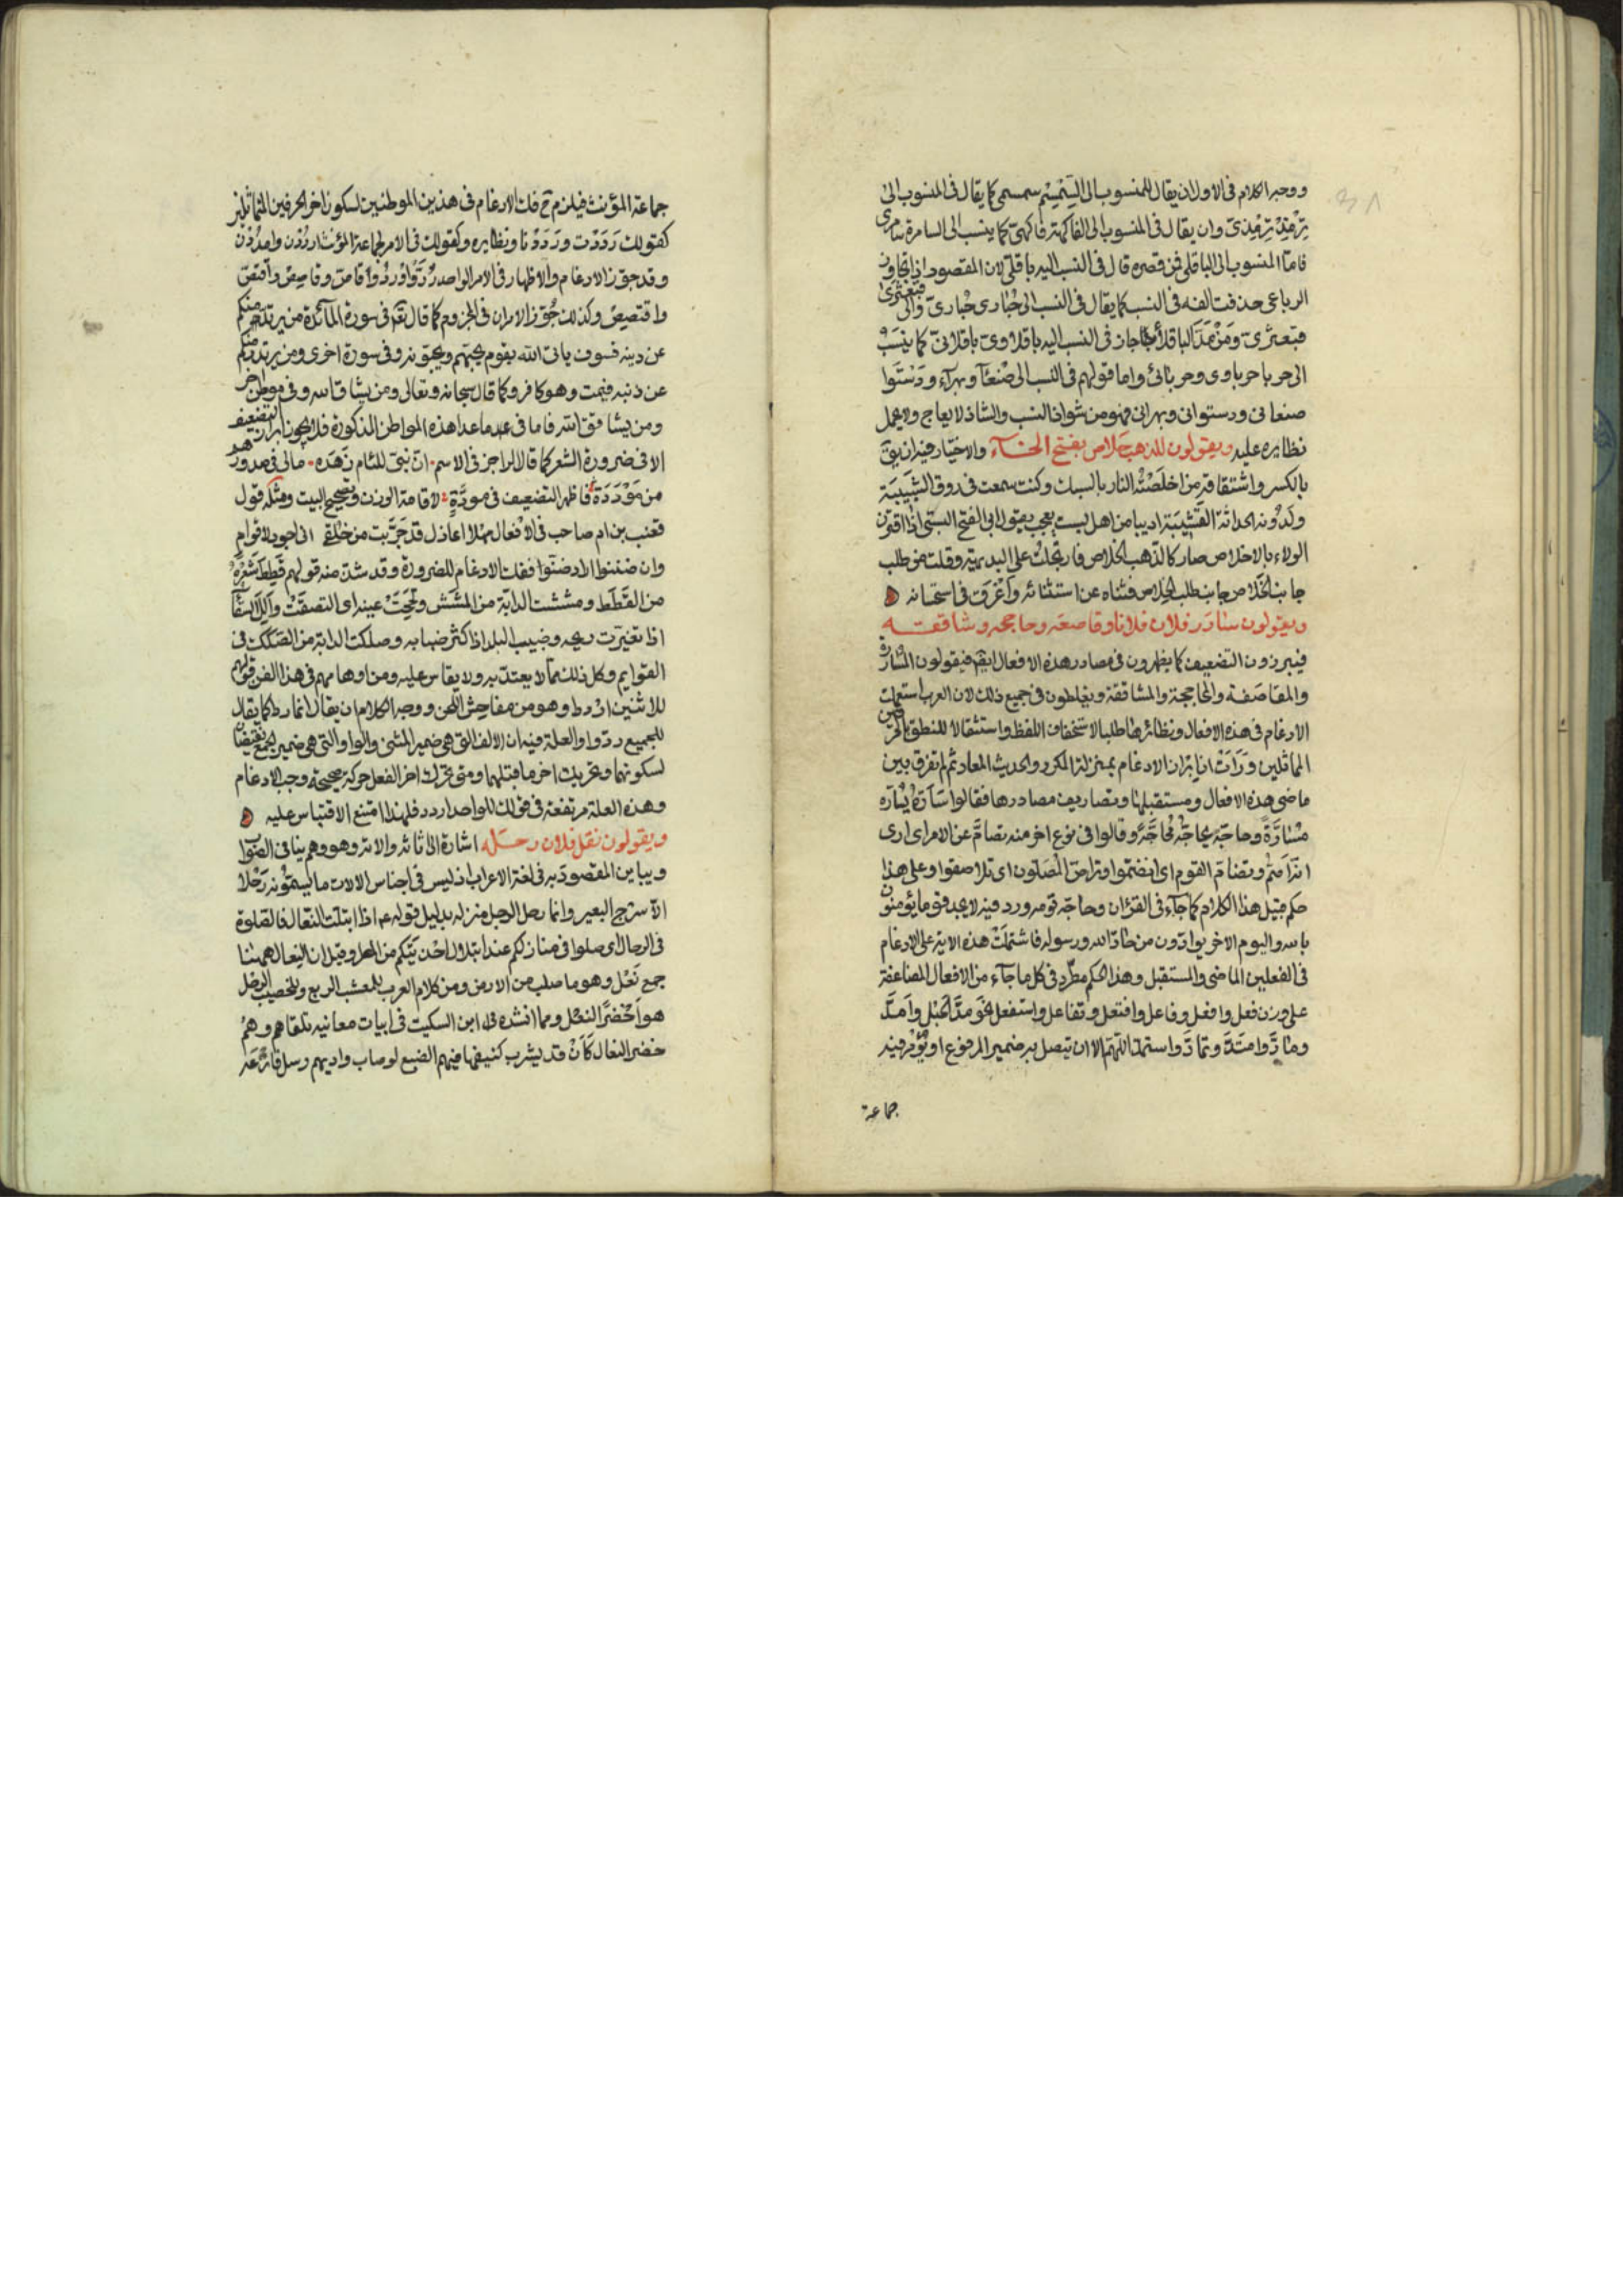 ووجه الكلام فى الاول ان يقال للمنسوب الى السِّمْسِم سمسمى كما يقال فى المنسوب الى
تِرْمِذ تِرْمِذىّ وان يقال فى المنسوب الى الفاكهة فاكهىّ كما ينسب الى السامرة سامرى
فامّا المنسوب الى الباقلى فمن قصره قال فى النسب اليه باقلىّ لان المقصود اذا تجاوز
الرباعى حذفت الفه فى النسب كما يقال فى النسب الى حُبارى حُبارىّ والى قبعثرى
قبعثرىّ ومَنْ مَدّ الباقلاء اجاز فى النسب اليه باقلاوى باقلائىّ كما يُنسَبُ
الى حربا حرباوى وحربائى واما قولهم فى النسب الى صَنْعآ وبهرآء ودَسْتَوا
صنعانى ودستوانى وبهرانى فهو من شواذ النسب والشاذ لا يعاج ولا يحمل
نظايره عليه ويقولون للذهب خَلاص بفتح الخــاء والاختيار فيه ان يق
بالكسر واشتقاقه من اخلَصَتْه النار بالسبك وكنت سمعت فى روق الشبيبَة
ولَدُونة الحداثة القَشِيْبَة اديبا من اهل بست يعجب بقول ابى الفتح البستى اذا اقترن
الولاء بالاخلاص صار كالذهب الخلاص فارتجلتُ على البديهة وقلت من طلب
جانب الخَلاص جانب طلب الخِلاص فثناه عن استثنائه واغْرَق فى استحسانه
ويقولون سَارَر فلان فلانا وقاصصه وحاججه وشاققــه
فيبرزون التضعيف كما يظهرون فى مصادر هذه الافعال ايضا فيقولون المُسَارَرة
والمقاصَصَة والمحاججة والمشاققة ويغلطون فى جميع ذلك لان العرب استعملت
الادغام فى هذه الافعال ونظائرها طلبا لاستخفاف اللفظ واستثقالا للنطق بالحرفين
المماثلين ورَأَتْ ان ابراز الادغام بمنزلة المكرر والحديث المعاد ثم لم تفرق بين
ماضى هذه الافعال ومستقبلها وتصاريف مصادرها فقالوا سَارّه يُسَارّه
مُسَارّةً وحاجّه يُحاجّه مُحاجّةً وقالوا فى نوع اخر منه تصامّ عن الامر اى ارى
انه اصَمّ وتضامّ القوم اى انضمّوا وتراصّ المُصَلّون اى تلاصقوا وعلى هذا
حكم قبيل هذا الكلام كما جآء فى القرآن وحاجّه قومه وورد فيه لا تجد قوما يؤمنون
بالله واليوم الاخر يوادّون من حادّ الله ورسوله فاشتملَتْ هذه الاية على الادغام
فى الفعلين الماضى والمستقبل وهذا الحكم مطّرد فى كل ما جآء من الافعال المضاعفة
على وزن فعل وافعل وفاعل وافتعل وتفاعل واستفعل نحو مَدَّ الحَبْل وأمَدَّ
ومادَّ وامتدَّ وتمادَّ واستمدّ اللهمّ الا ان يتصل به ضمير المرفوع او يؤمر فيه
جماعة
جماعة المؤنث فيلزم ح فك الادغام فى هذين الموطنين لسكون اخر الحرفين المتماثلين
كقولك رَدَدْت ورَدَدْنا ونظايره وكقولك فى الامر لجماعة المؤنث ارْدُدْن وامْدُدْنَ
وقد جوّز الادغام والاظهار فى الامر الواحد رُدَّ وارْدُدْ وقاصّ وقاصِصْ واقتصّ
واقتصِصْ وكذلك جُوّز الامران فى المجزوم كما قال تعالى فى سورة المآئدة من يرتد منكم
عن دينه فسوف ياتى الله بقوم يحبّهم ويحبّونه وفى سورة اخرى ومن يرتدد منكم
عن دينه فيمت وهو كافر وكما قال سبحانه وتعالى ومن يشاقّ الله وفى موطن اخر
ومن يشاقق الله فاما فى عدا هذه المواطن المذكورة فلا يجوز ابراز التضعيف
الا فى ضرورة الشعر كما قال الراجز فى الاسم ۰ انّ بَنِىّ للئام زَهَدَه ۰ مالى فى صدورهم
من مَوْدَدَة فاظهر التضعيف فى مودّةٍ لاقامة الوزن وتصحيح البيت ومثله قول
قعنب بن ام صاحب فى الافعال مهلا اعاذل قد جَرّبت من خُلقى انى اجود لاقوام
وان ضننوا اراد ضنّوا ففك الادغام للضرورة وقد شذّ منه قولهم قَطِطَ شَعْرُه
من القَطَط ومششت الدابّة من المَشَش ولَحِحَتْ عينه اى التصقَتْ وأَلِلَ السقآ
اذا تغيّرت ريحه وضبب البلد اذا كثر ضبابه وصككت الدابة من الصَكَك فى
القوايم وكل ذلك ممّا لا يعتدّ به ولا يقاس عليه ومن اوهامهم فى هذا الفن قولهم
للاثنين اردد وهو من مفاحش اللحن ووجه الكلام ان يقال لهما ردا كما يقال
للجميع ردّوا والعلة فيه ان الالف التى هى ضمير المثنى والواو التى هى ضمير الجمع تقتضيان
لسكونهما وتحريك اخر ما قبلهما ومتى تحرك اخر الفعل حركة صحيحة وجب الادغام
وهذه العلة مرتفعة فى قولك للواحد اردد فلهذا امتنع الاقتباس عليه
ويقولون نقل فلان رحــله اشارة الى اثاثه والاته وهو وهم ينافى الصَوَابَ
ويباين المقصود به فى لغة الاعراب اذ ليس فى اجناس الالات ما يسمّونه رَحْلا
الا سرج البعير وانما رحل الرجل منزله بدليل قوله عم اذا ابتلّت النعال فالصلوة
فى الرحال اى صلوا فى منازلكم عند ابتلال احذيتكم من المطر وقيل ان النعال ههنا
جمع نَعْل وهو ما صلب من الارض ومن كلام العرب للمعشب الربع وللخصيب الرحل
هو اَخْضَر النعل ومما انشده ابن السكيت فى ابيات معانيه تلقاهم وهم
خضر النعال كَأَنْ قد يشرب كنيفها فيهم الضبع لو صاب واديهم رسل قارعة